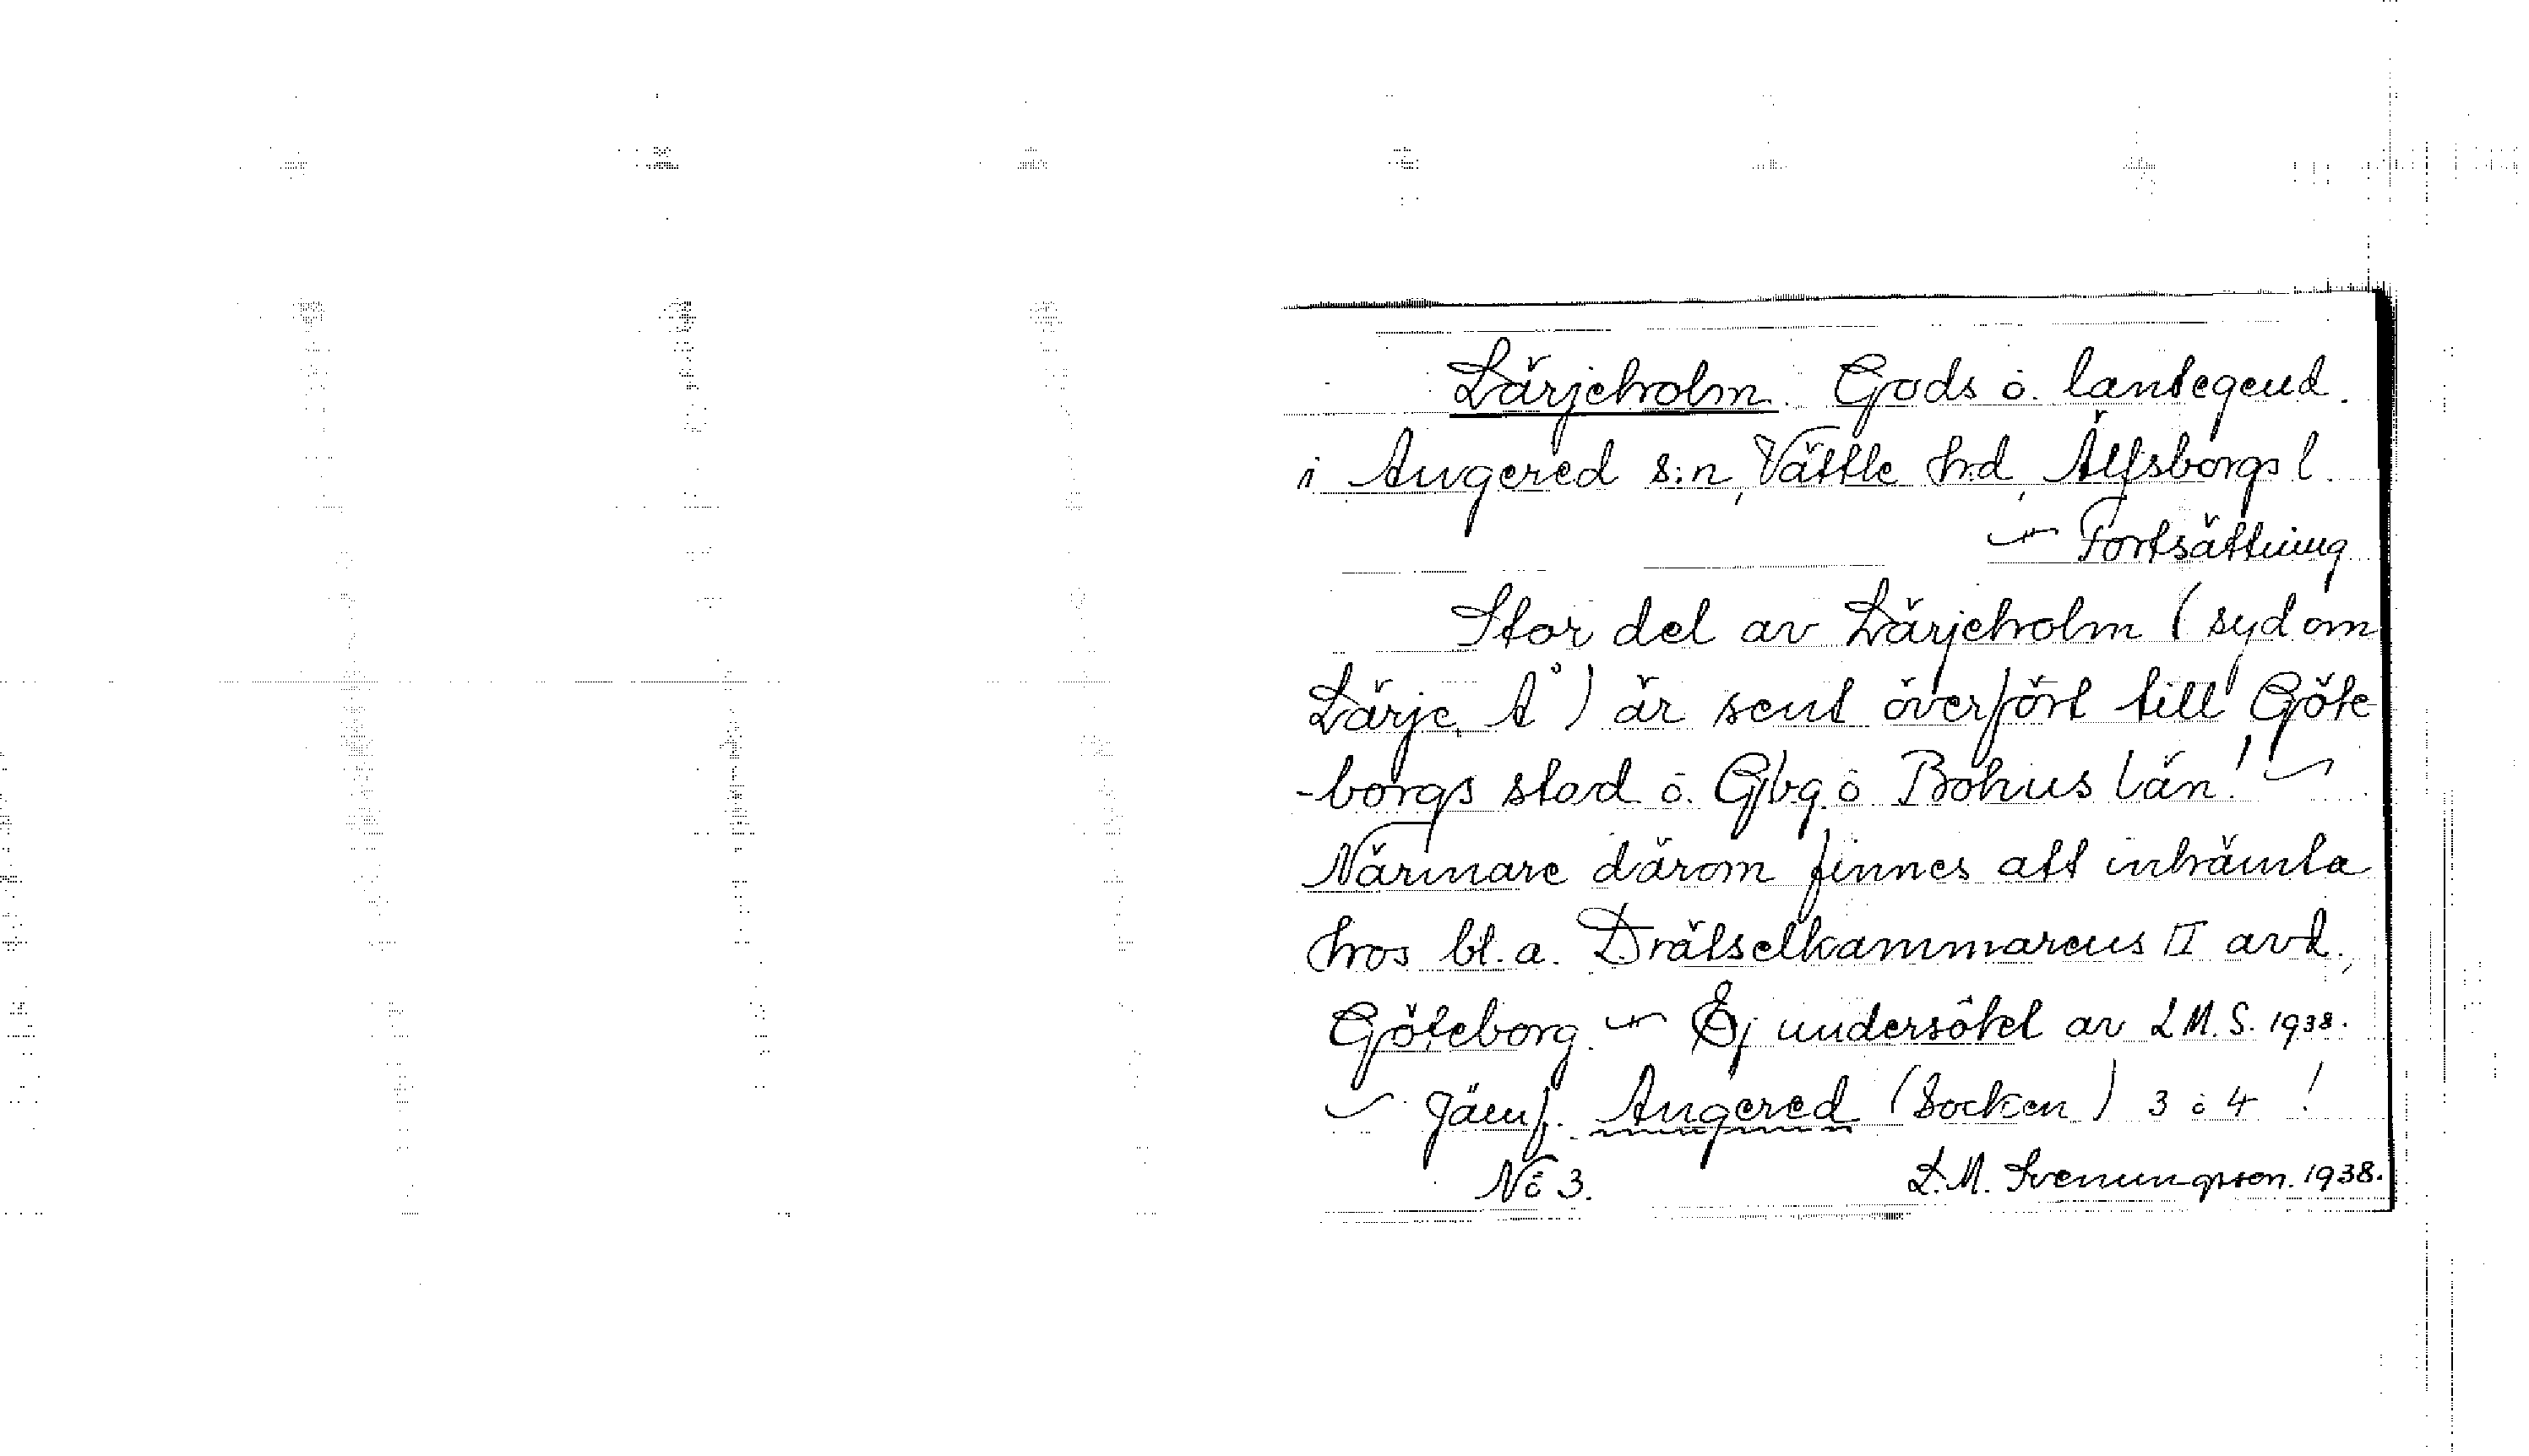 Lärjeholm. Gods o. lantegend.
i Angered s:n, Vättle h:d, Älfsborgs l.
— Fortsättning
Stor del av Lärjeholm (syd om
Lärje Å) är sent överfört till Göte
-borgs stad o. Gbg. o Bohus län! —
Närmare därom finnes att inhämta
hos bl. a. Drätselkammarens II avd.,
Göteborg. — Ej undersökt av L M. S. 1938.
— Jämf. Angered (Socken) 3 o 4 !
No 3. L. M. Svenungsson. 1938.